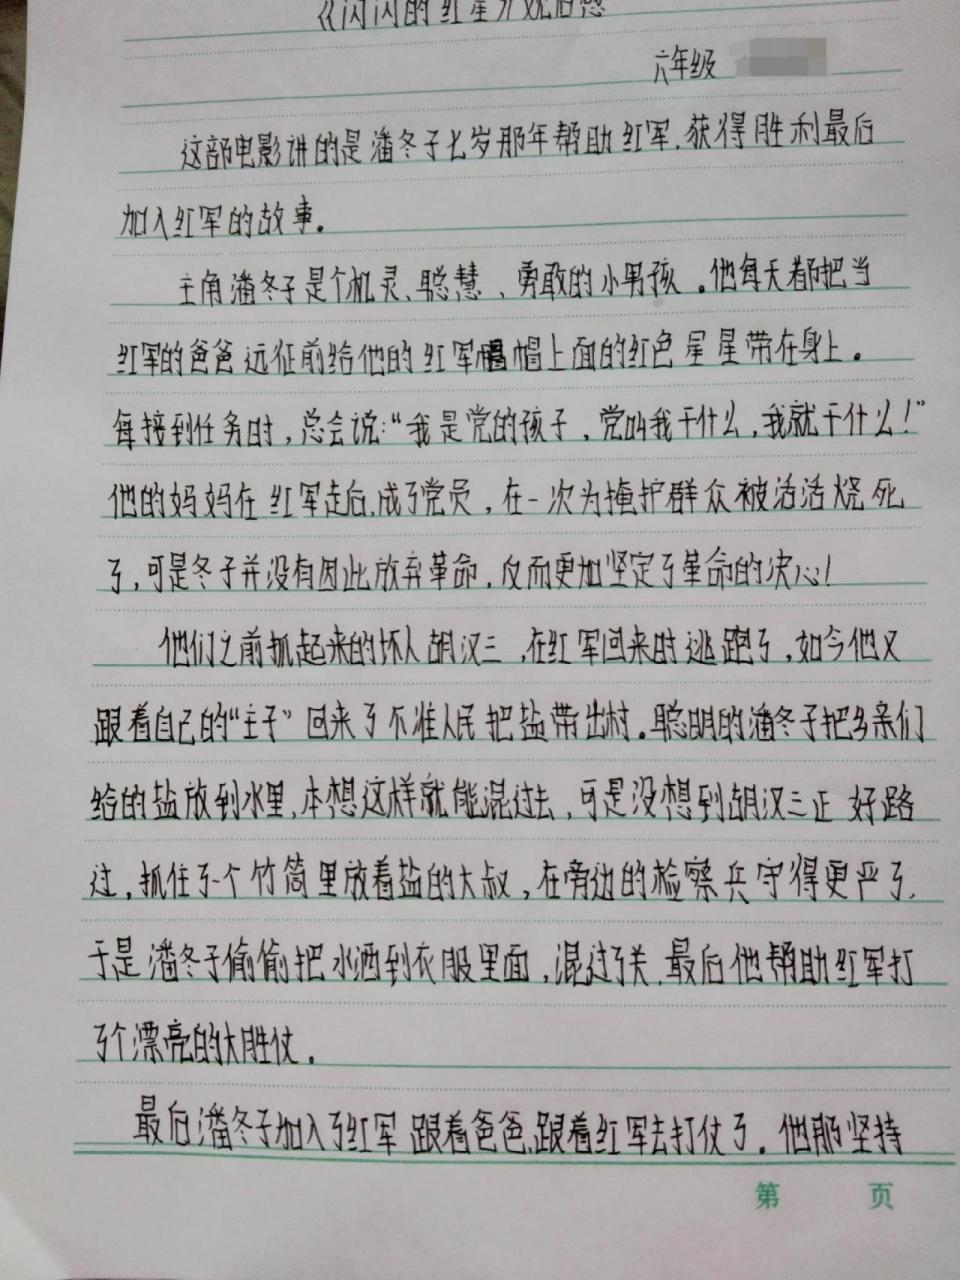 《闪闪的红星》观后感
六年级
这部电影讲的是潘冬子七岁那年帮助红军,获得胜利最后
加入红军的故事。
主角潘冬子是个机灵、聪慧、勇敢的小男孩。他每天都把当
红军的爸爸远征前给他的红军帽上面的红色星星带在身上。
每接到任务时,总会说:“我是党的孩子,党叫我干什么,我就干什么!”
他的妈妈在红军走后,成了党员,在一次为掩护群众被活活烧死
了,可是冬子并没有因此放弃革命,反而更加坚定了革命的决心!
他们之前抓起来的坏人胡汉三,在红军回来时逃跑了,如今他又
跟着自己的“主子”回来了不准人民把盐带出村。聪明的潘冬子把乡亲们
给的盐放到水里,本想这样就能混过去,可是没想到胡汉三正好路
过,抓住了个竹筒里放着盐的大叔,在旁边的检察兵守得更严了,
于是潘冬子偷偷把水洒到衣服里面,混过了关,最后他帮助红军打
了个漂亮的大胜仗。
最后潘冬子加入了红军跟着爸爸,跟着红军去打仗了。他那坚持
第 页